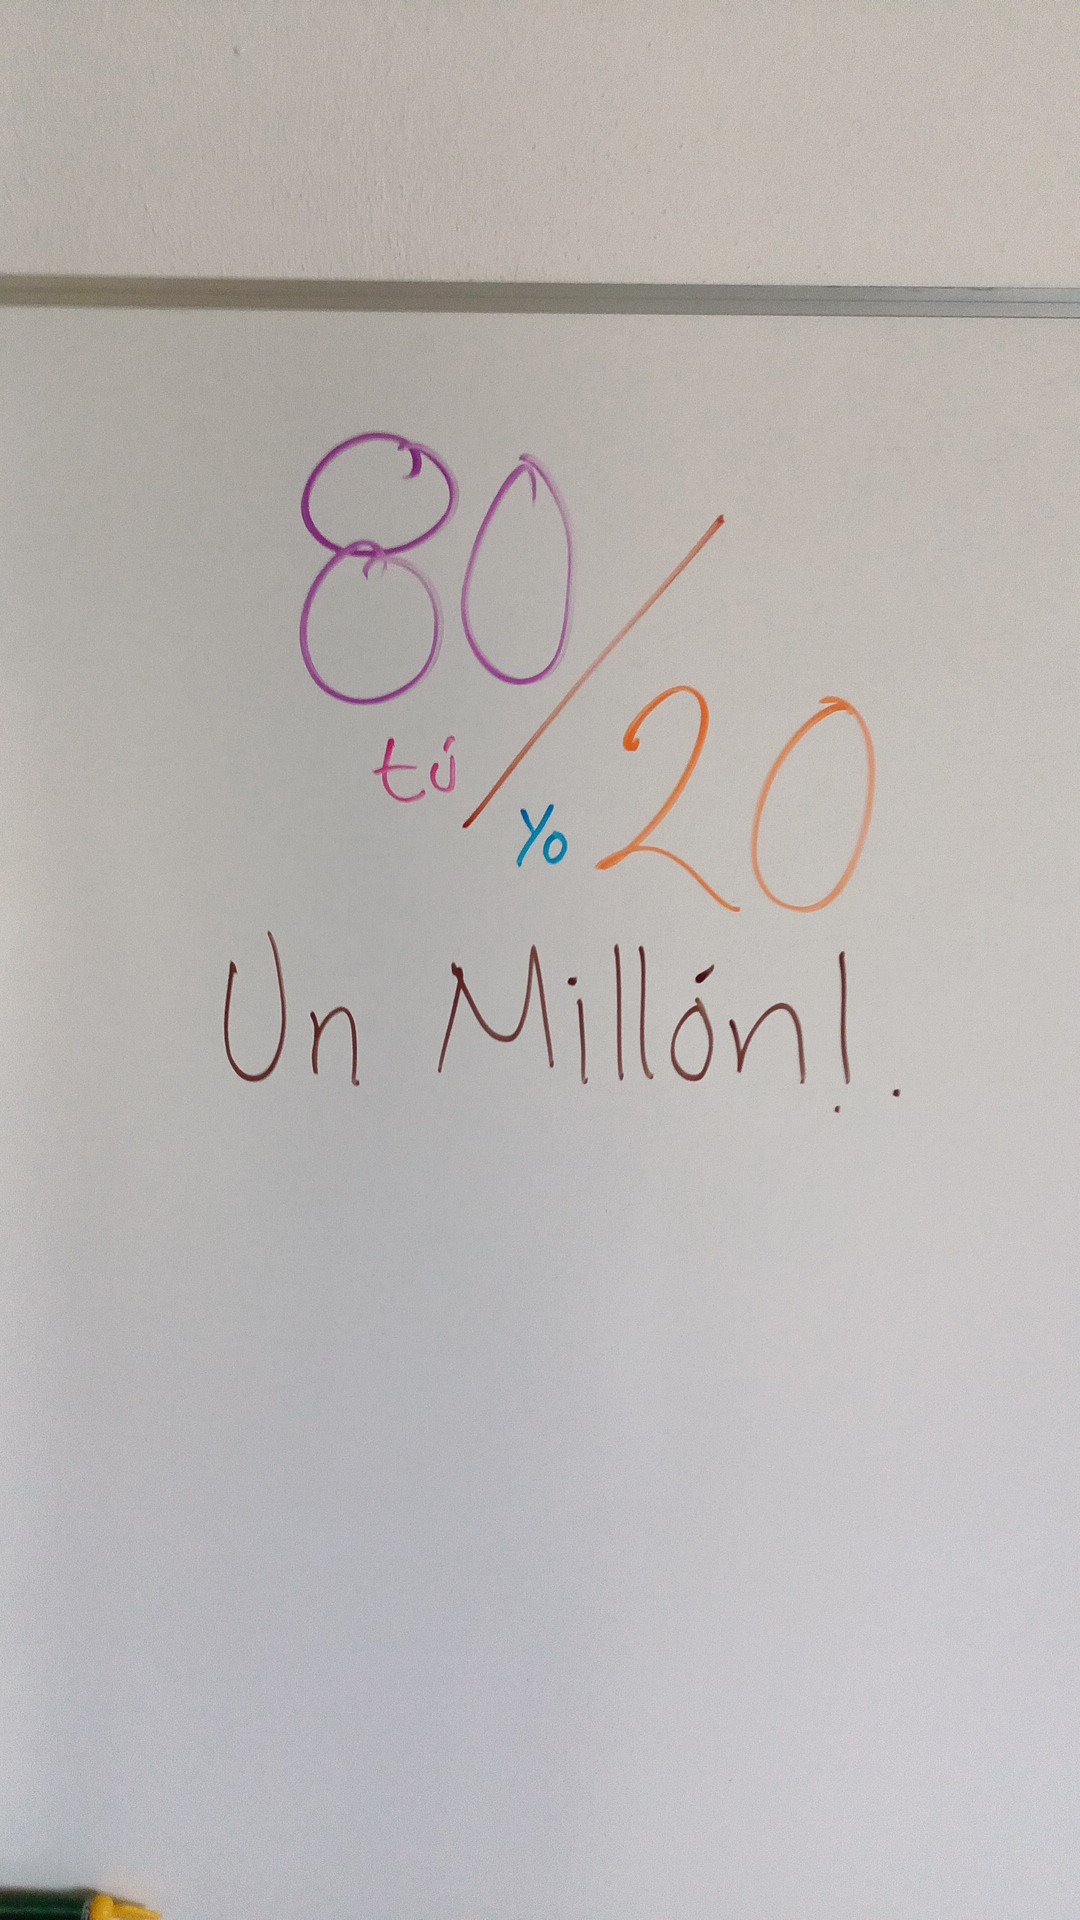 80/20
tú yo
Un Millón!.